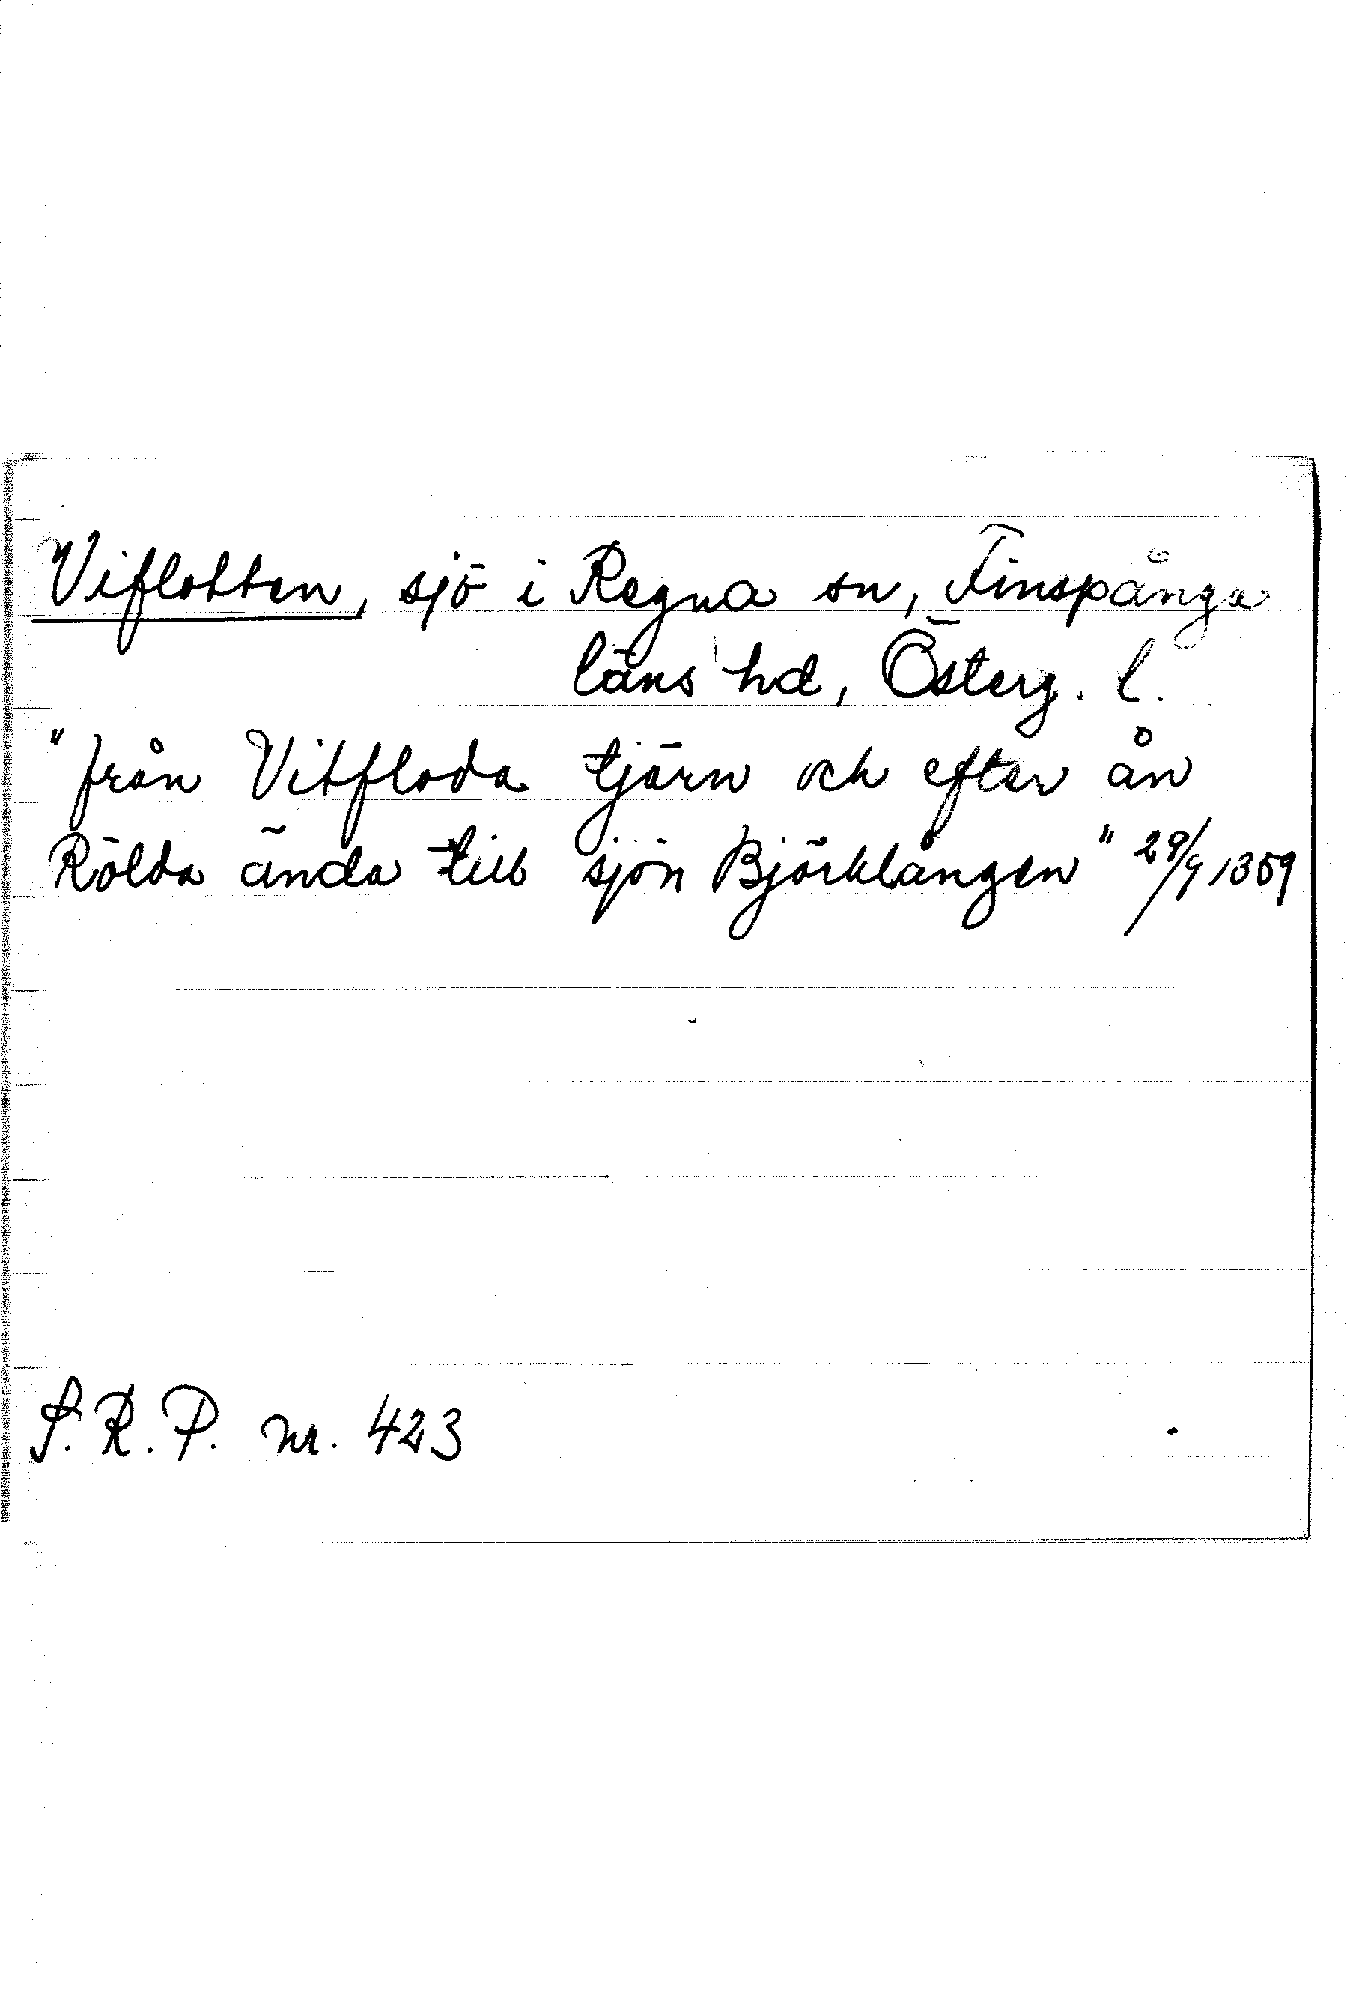 Viflotten, sjö i Regna sn, Finspånga
läns hd, Österg. l.
"från Vitfloda tjärn och efter ån
Rölda ända till sjön Björklången" 29/9 1359
S.R.P. nr. 423